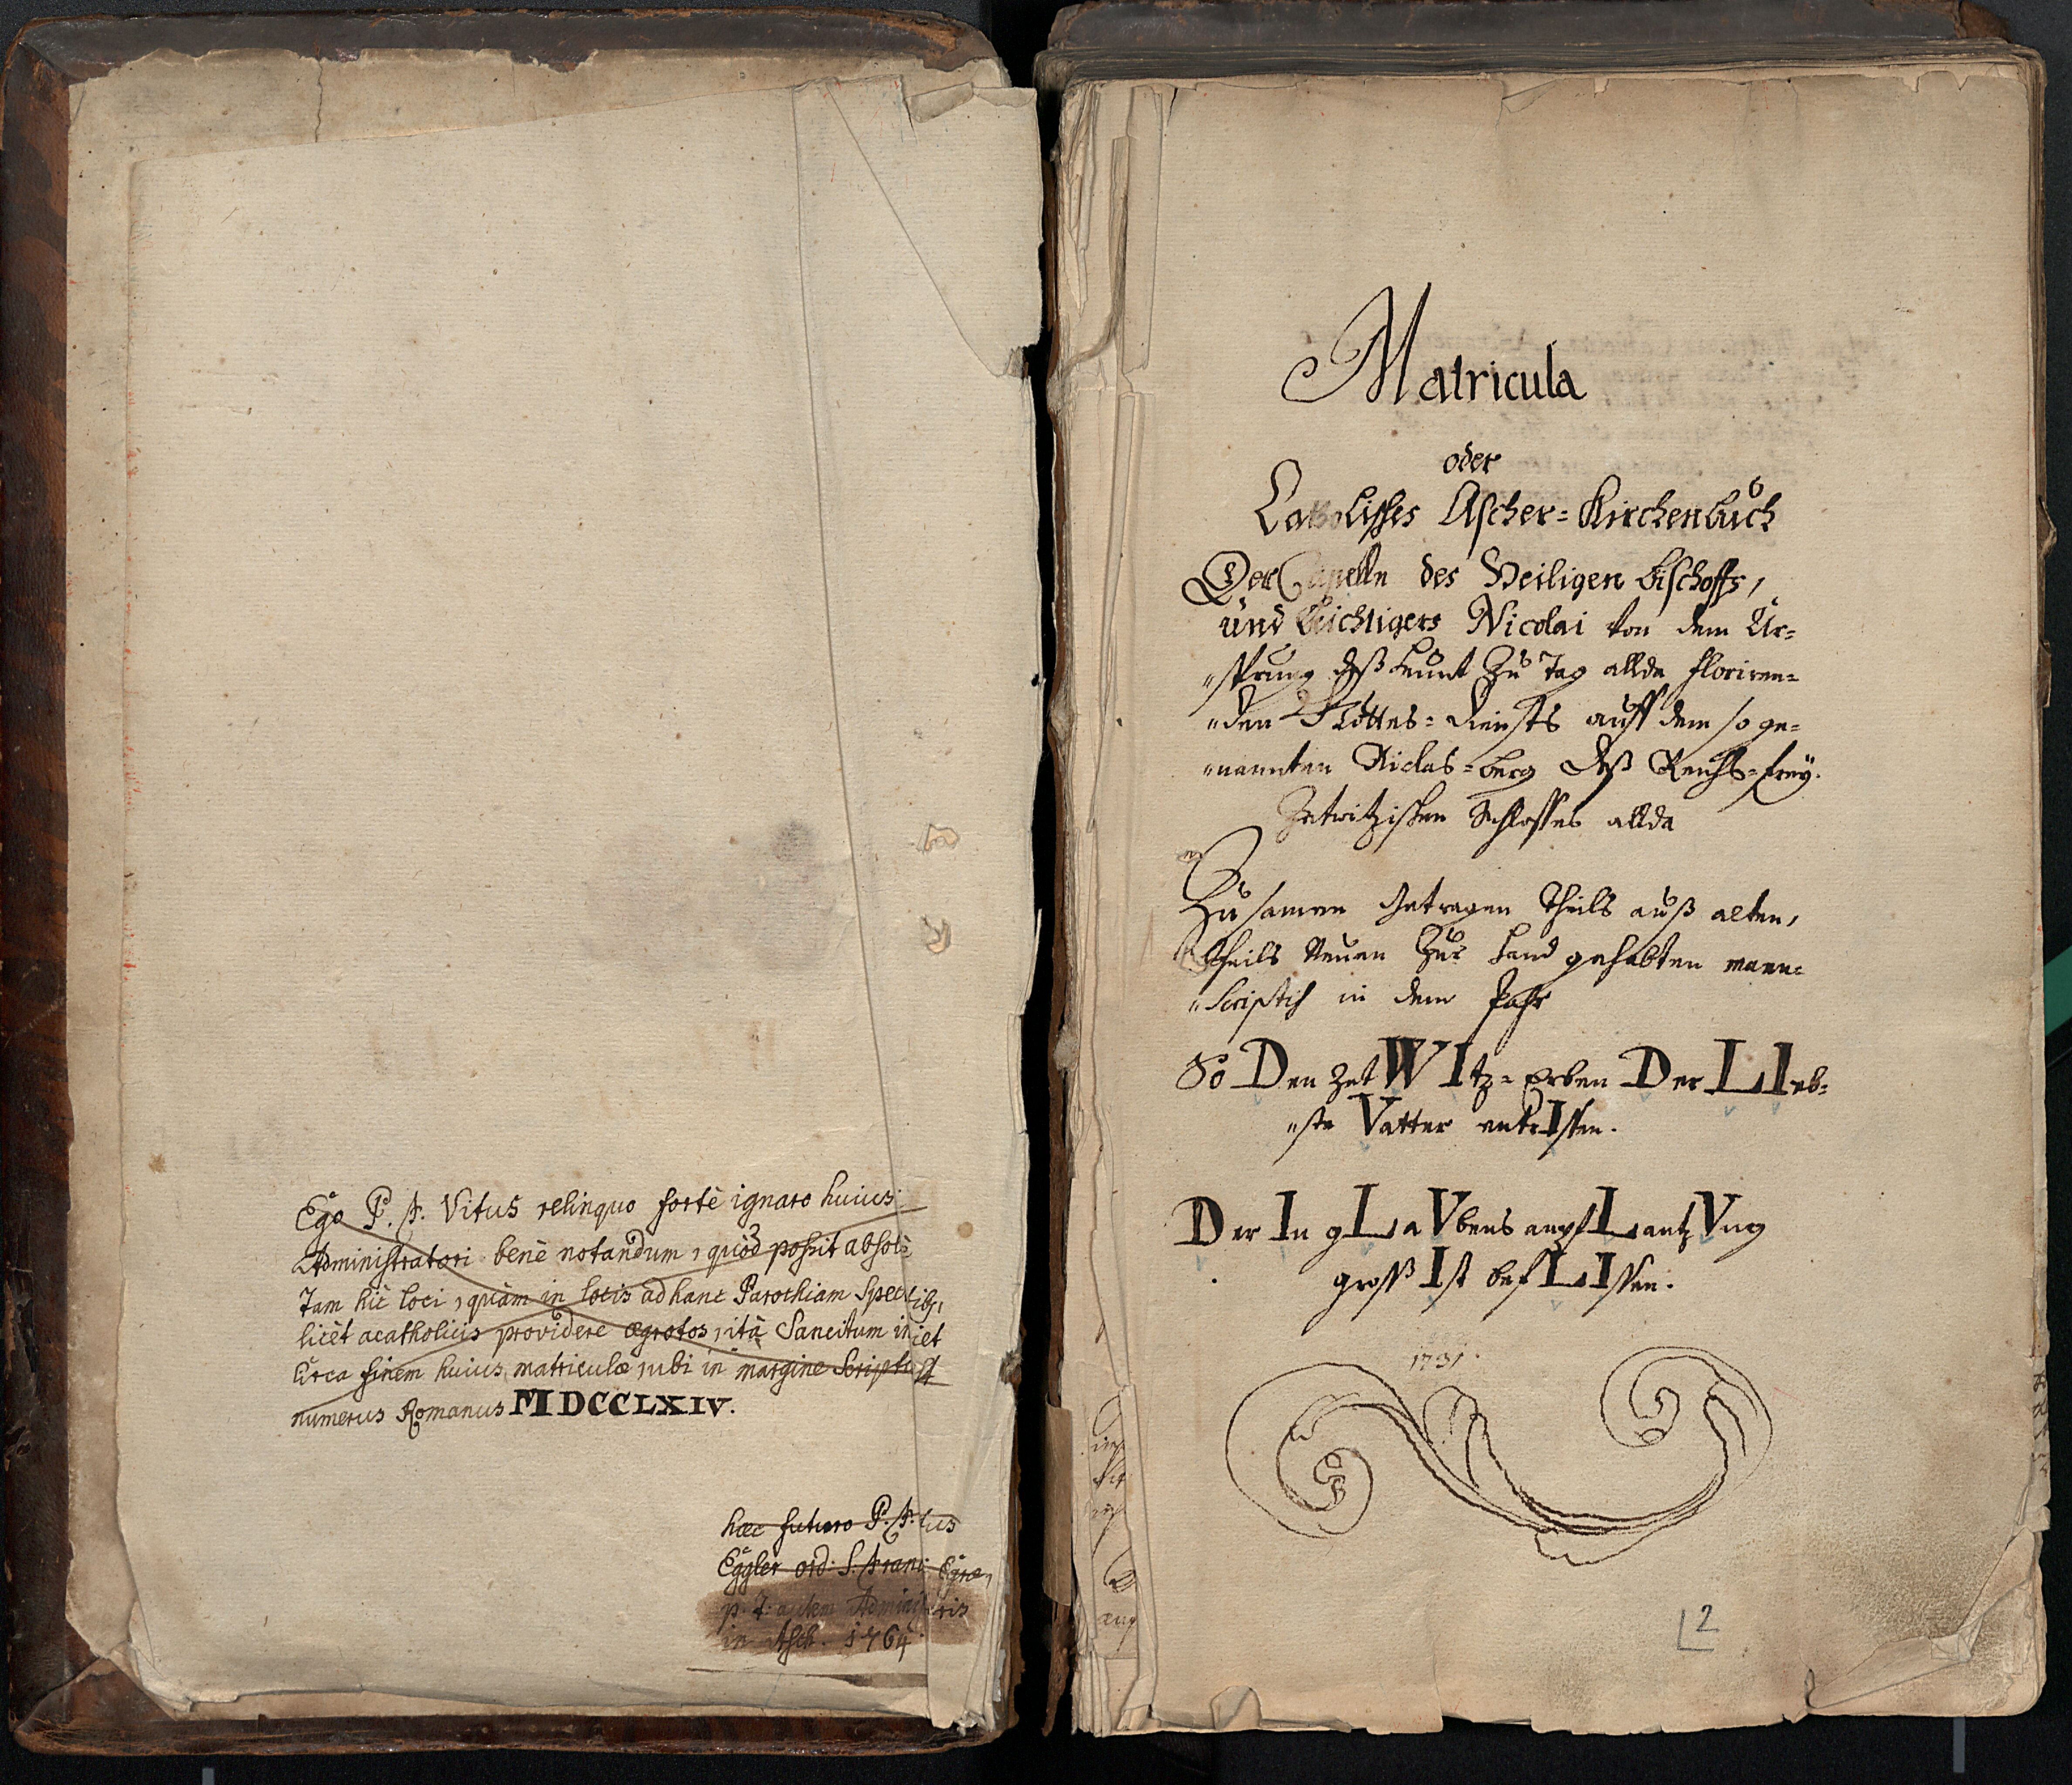 Ego P. F. Vitus relinquo fortè ignaro huius
Administratori benè notandum, quòd possit absolꝰ
Tam hìc loci, quàm in locis ad hanc Parochiam Spectibꝫ,
licèt acatholicis providere ægrotos, ità Sancitum
circa finem huius matriculæ, ubi in margine
numerus Romanus MDCCLXIV.
hæc futuro P. F.
Eggler ord: S. Franc: Egræ,
p. t. autem
in Asch. 1764.
Matricula
oder
Catholisches Ascher=Kirchenbuch
Der Capelln des Heiligen bischoffs,
und beichtigers Nicolai von dem Ur=
„sprung deß heunt Zu Tag allda floriren=
„den Gottes=diensts auff dem so ge=
„nannten Niclas=berg deß Reichs=frey.
Zetwitzischen Schlosses allda
Zusamen getragen Theils auß alten,
theils Neuen Zur hand gehabten manu=
„scriptis in dem Jahr
So Den ZetWItz=Erben Der LIeb=
„ste Vatter entrIssen.
Der In gLaVbens anpfLantzVng
gross Ist befLIssen.
1731.
2